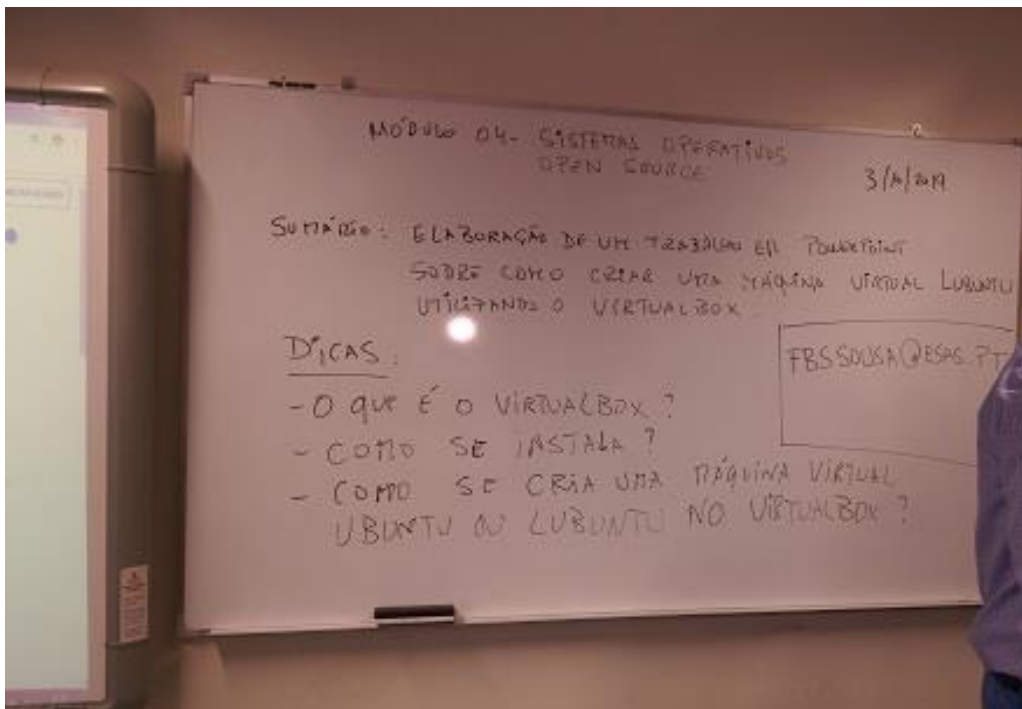 MÓDULO 04- SISTEMAS OPERATIVOS
OPEN SOURCE
SUMÁRIO: ELABORAÇÃO DE UM TRABALHO EM POWERPOINT
SOBRE COMO CRIAR UMA MÁQUINA VIRTUAL LUBUNTU
UTILIZANDO O VIRTUALBOX
FBSSOUSA@ESAS.PT
DICAS:
- O QUE É O VIRTUALBOX?
- COMO SE INSTALA?
- COMO SE CRIA UMA MÁQUINA VIRTUAL
UBUNTU OU LUBUNTU NO VIRTUALBOX?